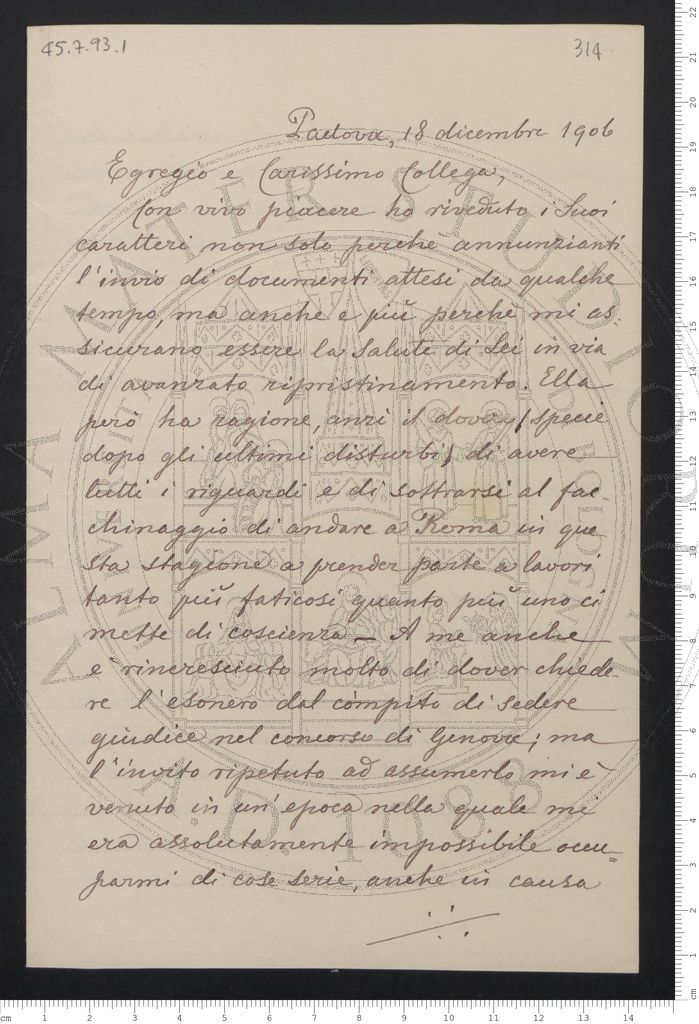 45.7.93.1
314
Padova, 18 dicembre 1906
Egregio e Carissimo Collega,
Con vivo piacere ho riveduto i Suoi
caratteri non solo perchè annunzianti
l'invio di documenti attesi da qualche
tempo, ma anche e più perchè mi as-
sicurano essere la salute di Lei in via
di avanzato ripristinamento. Ella
però ha ragione, anzi il dovere (specie
dopo gli ultimi disturbi) di avere
tutti i riguardi e di sottrarsi al fac-
chinaggio di andare a Roma in que-
sta stagione a prender parte a lavori
tanto più faticosi quanto più uno ci
mette di coscienza — A me anche
è rincresciuto molto di dover chiede-
re l'esonero dal còmpito di sedere
giudice nel concorso di Genova; ma
l'invito ripetuto ad assumerlo mi è
venuto in un'epoca nella quale mi
era assolutamente impossibile occu=
parmi di cose serie, anche in causa
ALMA MATER STUDIORUM
A.D. 1088